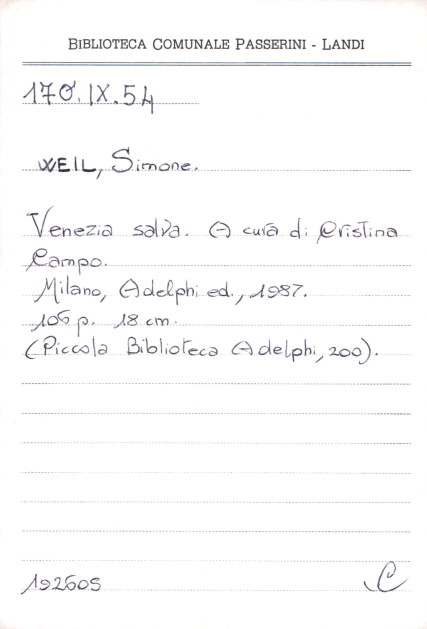 BIBLIOTECA COMUNALE PASSERINI - LANDI
170.IX.54
WEIL, Simone.
Venezia salva. A cura di Cristina
Campo.
Milano, Adelphi ed., 1987.
106 p. 18 cm.
(Piccola Biblioteca Adelphi, 200).
192605
C